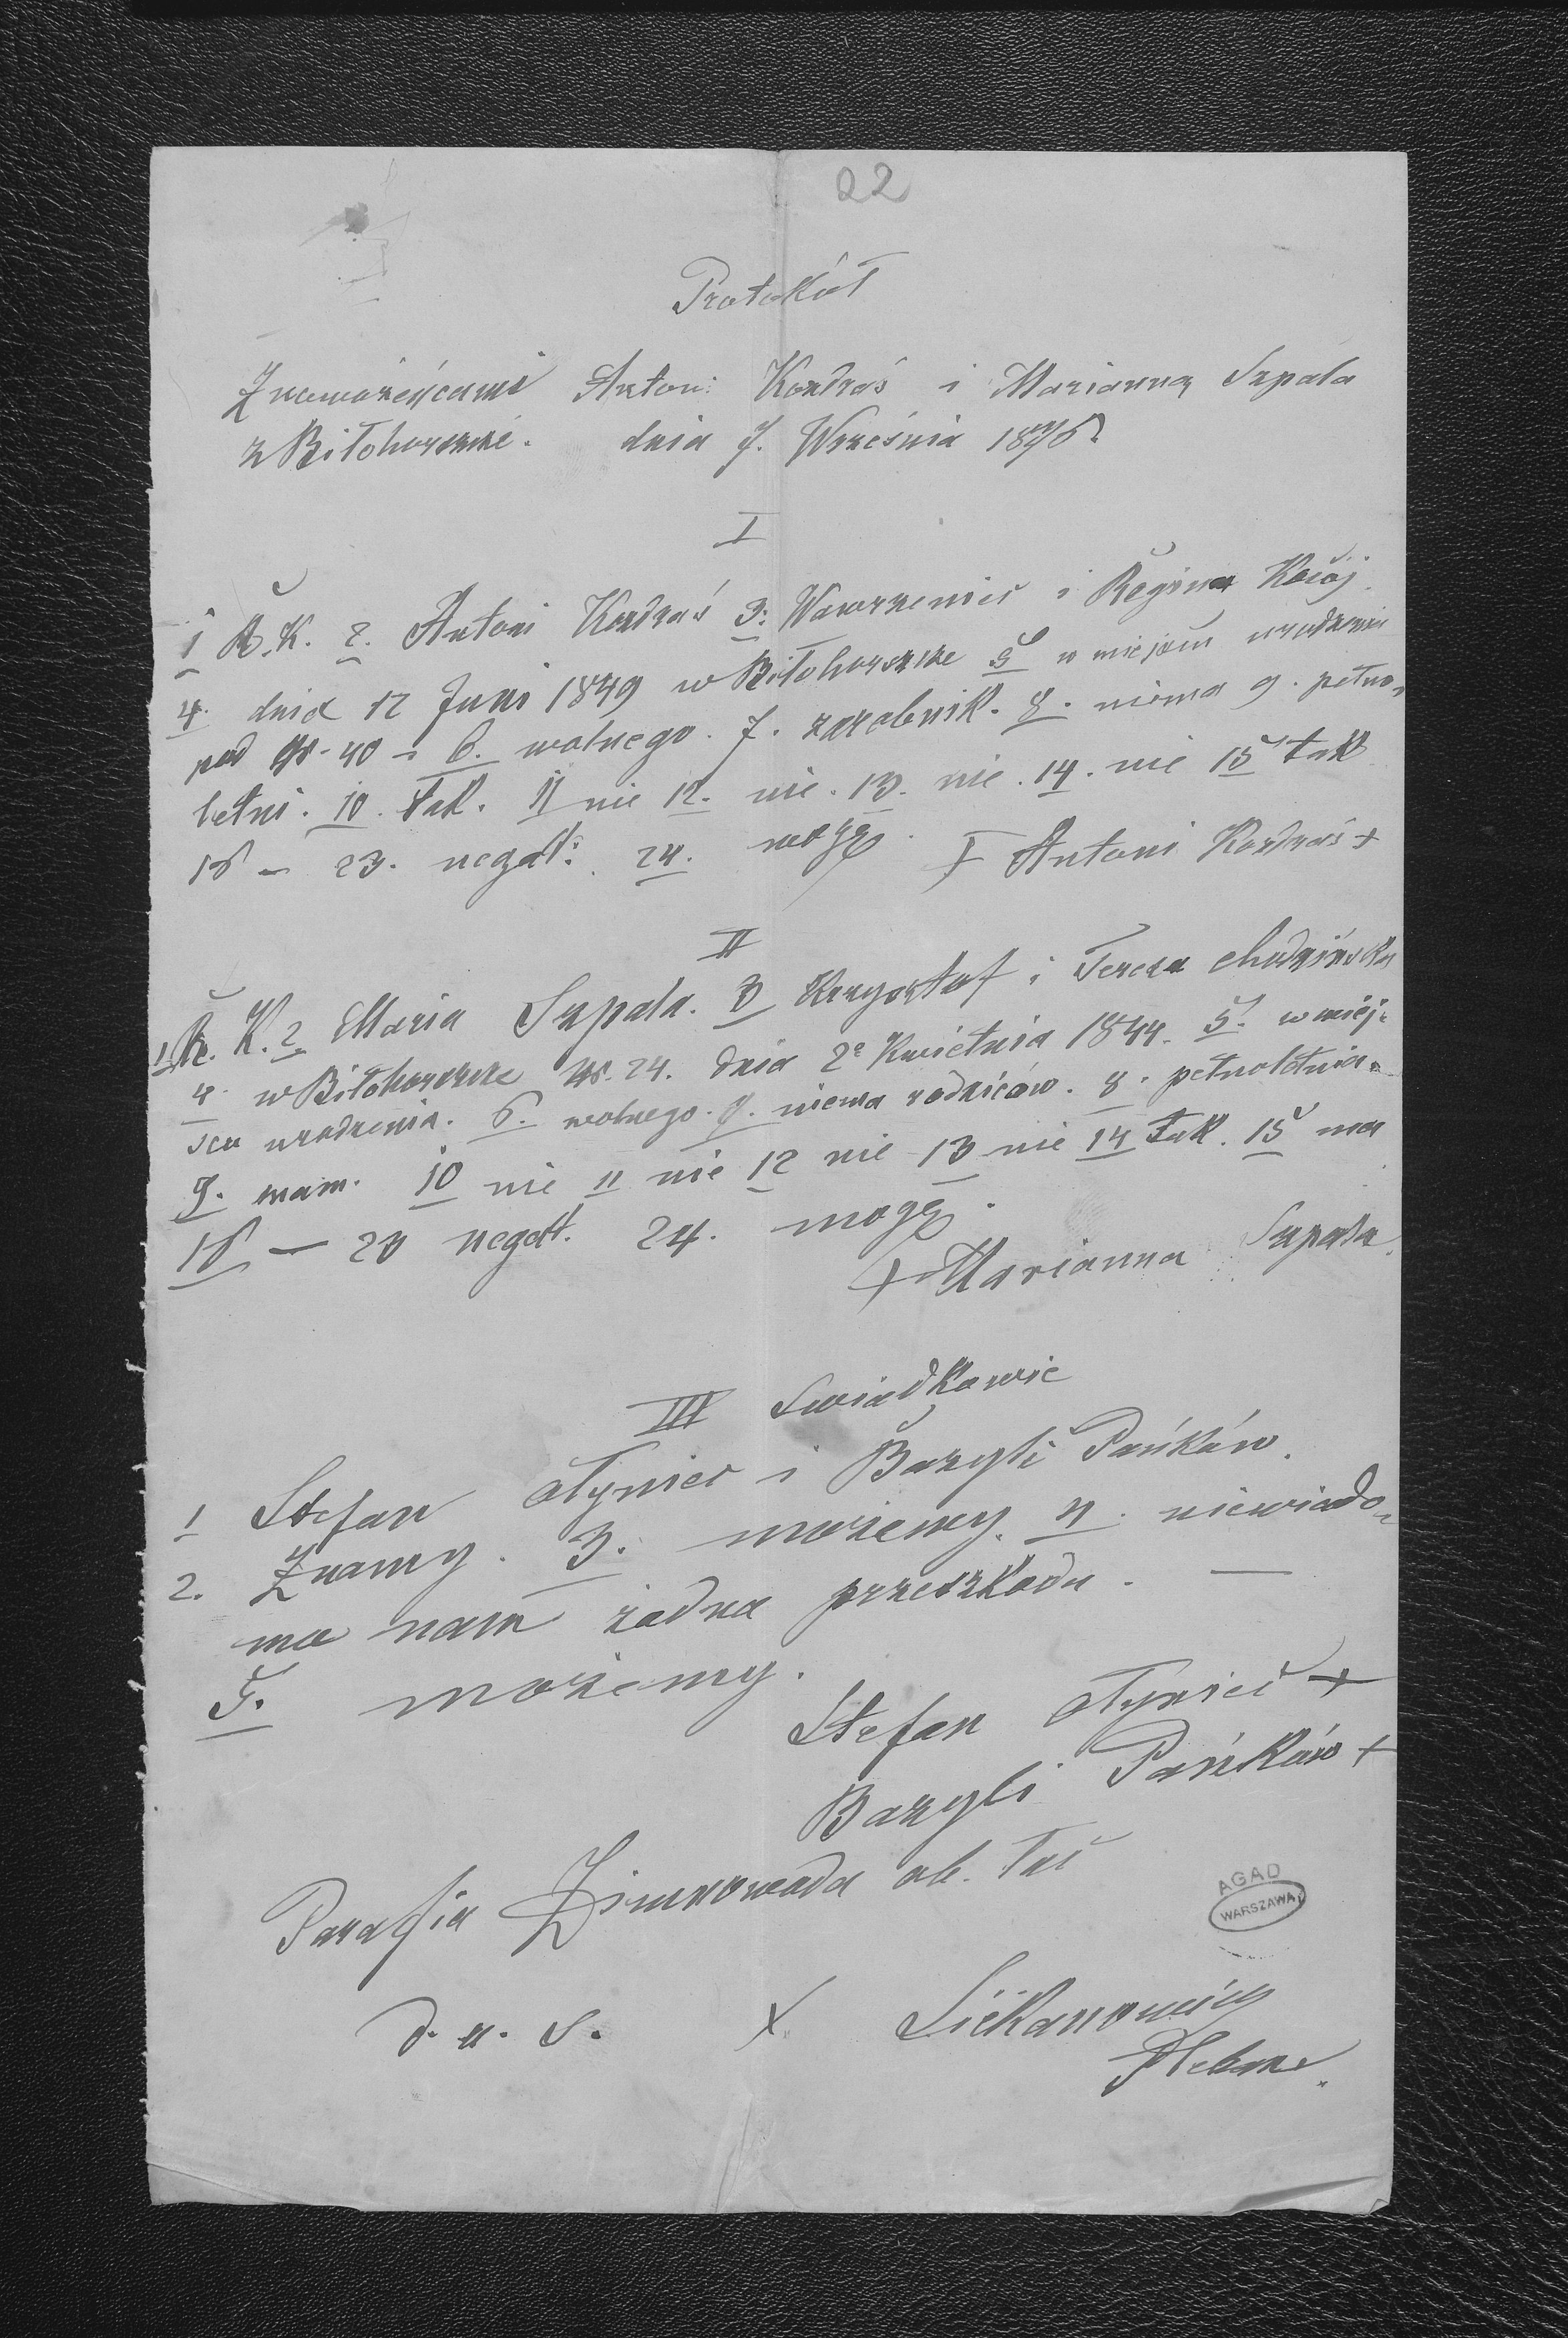 22
Protokół
Znowożeńcami Antoni Kondraś i Marianną Szpala
z Biłohorszcze. dnia 7. Września 1876.
I
1 R. K. 2. Antoni Kondraś 3. Wawrzeniec i Regina Kosój
4. dnia 12 Juni 1849 w Biłohorszcze 5 w miejscu urodzenia
pod Nr. 40 - 6. wolnego. 7. zarobnik. 8. niema 9. pełno-
letni. 10. tak. 11 nie 12. nie. 13. nie. 14. nie 15 tak
16 - 23. negat: 24. mogę. + Antoni Kondraś +
II
1. R. K. 2. Maria Szpala. 3 Krzysztof i Teresa Chudzińska
4. w Biłohorszcze Nr. 24. dnia 2 Kwietnia 1844. 5. w miej-
scu urodzenia. 6. wolnego. 7. niema rodziców. 8. pełnoletnia.
9. mam. 10 nie 11 nie 12 nie 13 nie 14 tak. 15 ma
16 — 23 negatt. 24. mogę.
+ Marianna Szpala.
III Swiadkowie
1 Stefan Ołyniec i Bazyli Pańków.
2. Znamy. 3. możemy. 4. niewiado-
ma nam żadna przeszkoda. —
5. możemy.
Stefan Ołyniec +
Bazyli Pańków +
Parafia Zimnowoda ob. łać
d. u. s. X. Sićkanowicz
Pleban.
AGAD
WARSZAWA